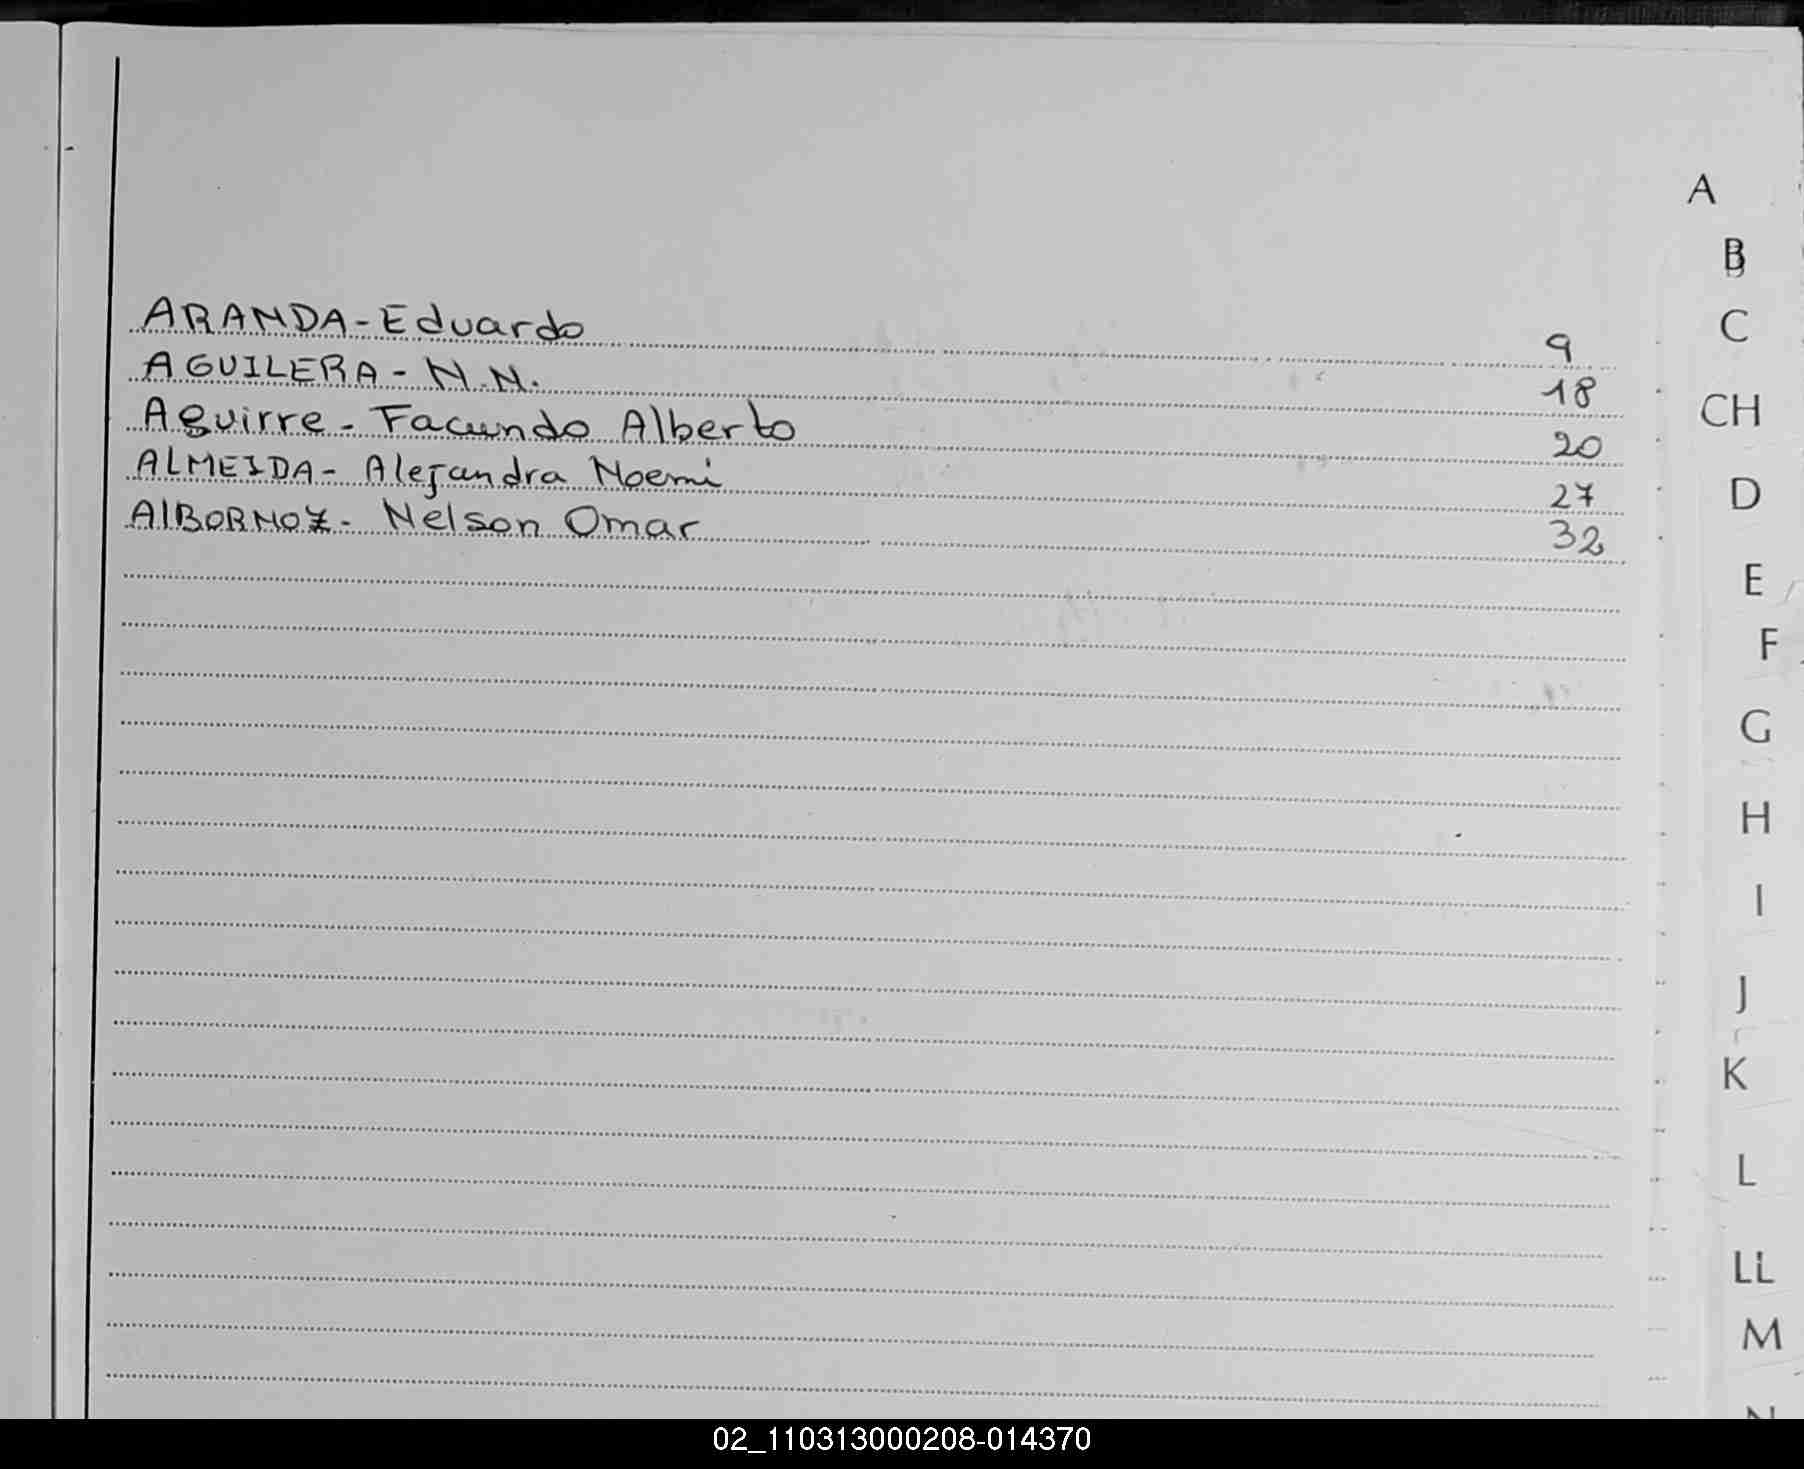 ARANDA - Eduardo 9
AGUILERA - N.N. 18
Aguirre - Facundo Alberto 20
ALMEIDA - Alejandra Noemi 27
AlBORNOZ - Nelson Omar 32
A
B
C
CH
D
E
F
G
H
I
J
K
L
LL
M
N
02_110313000208-014370